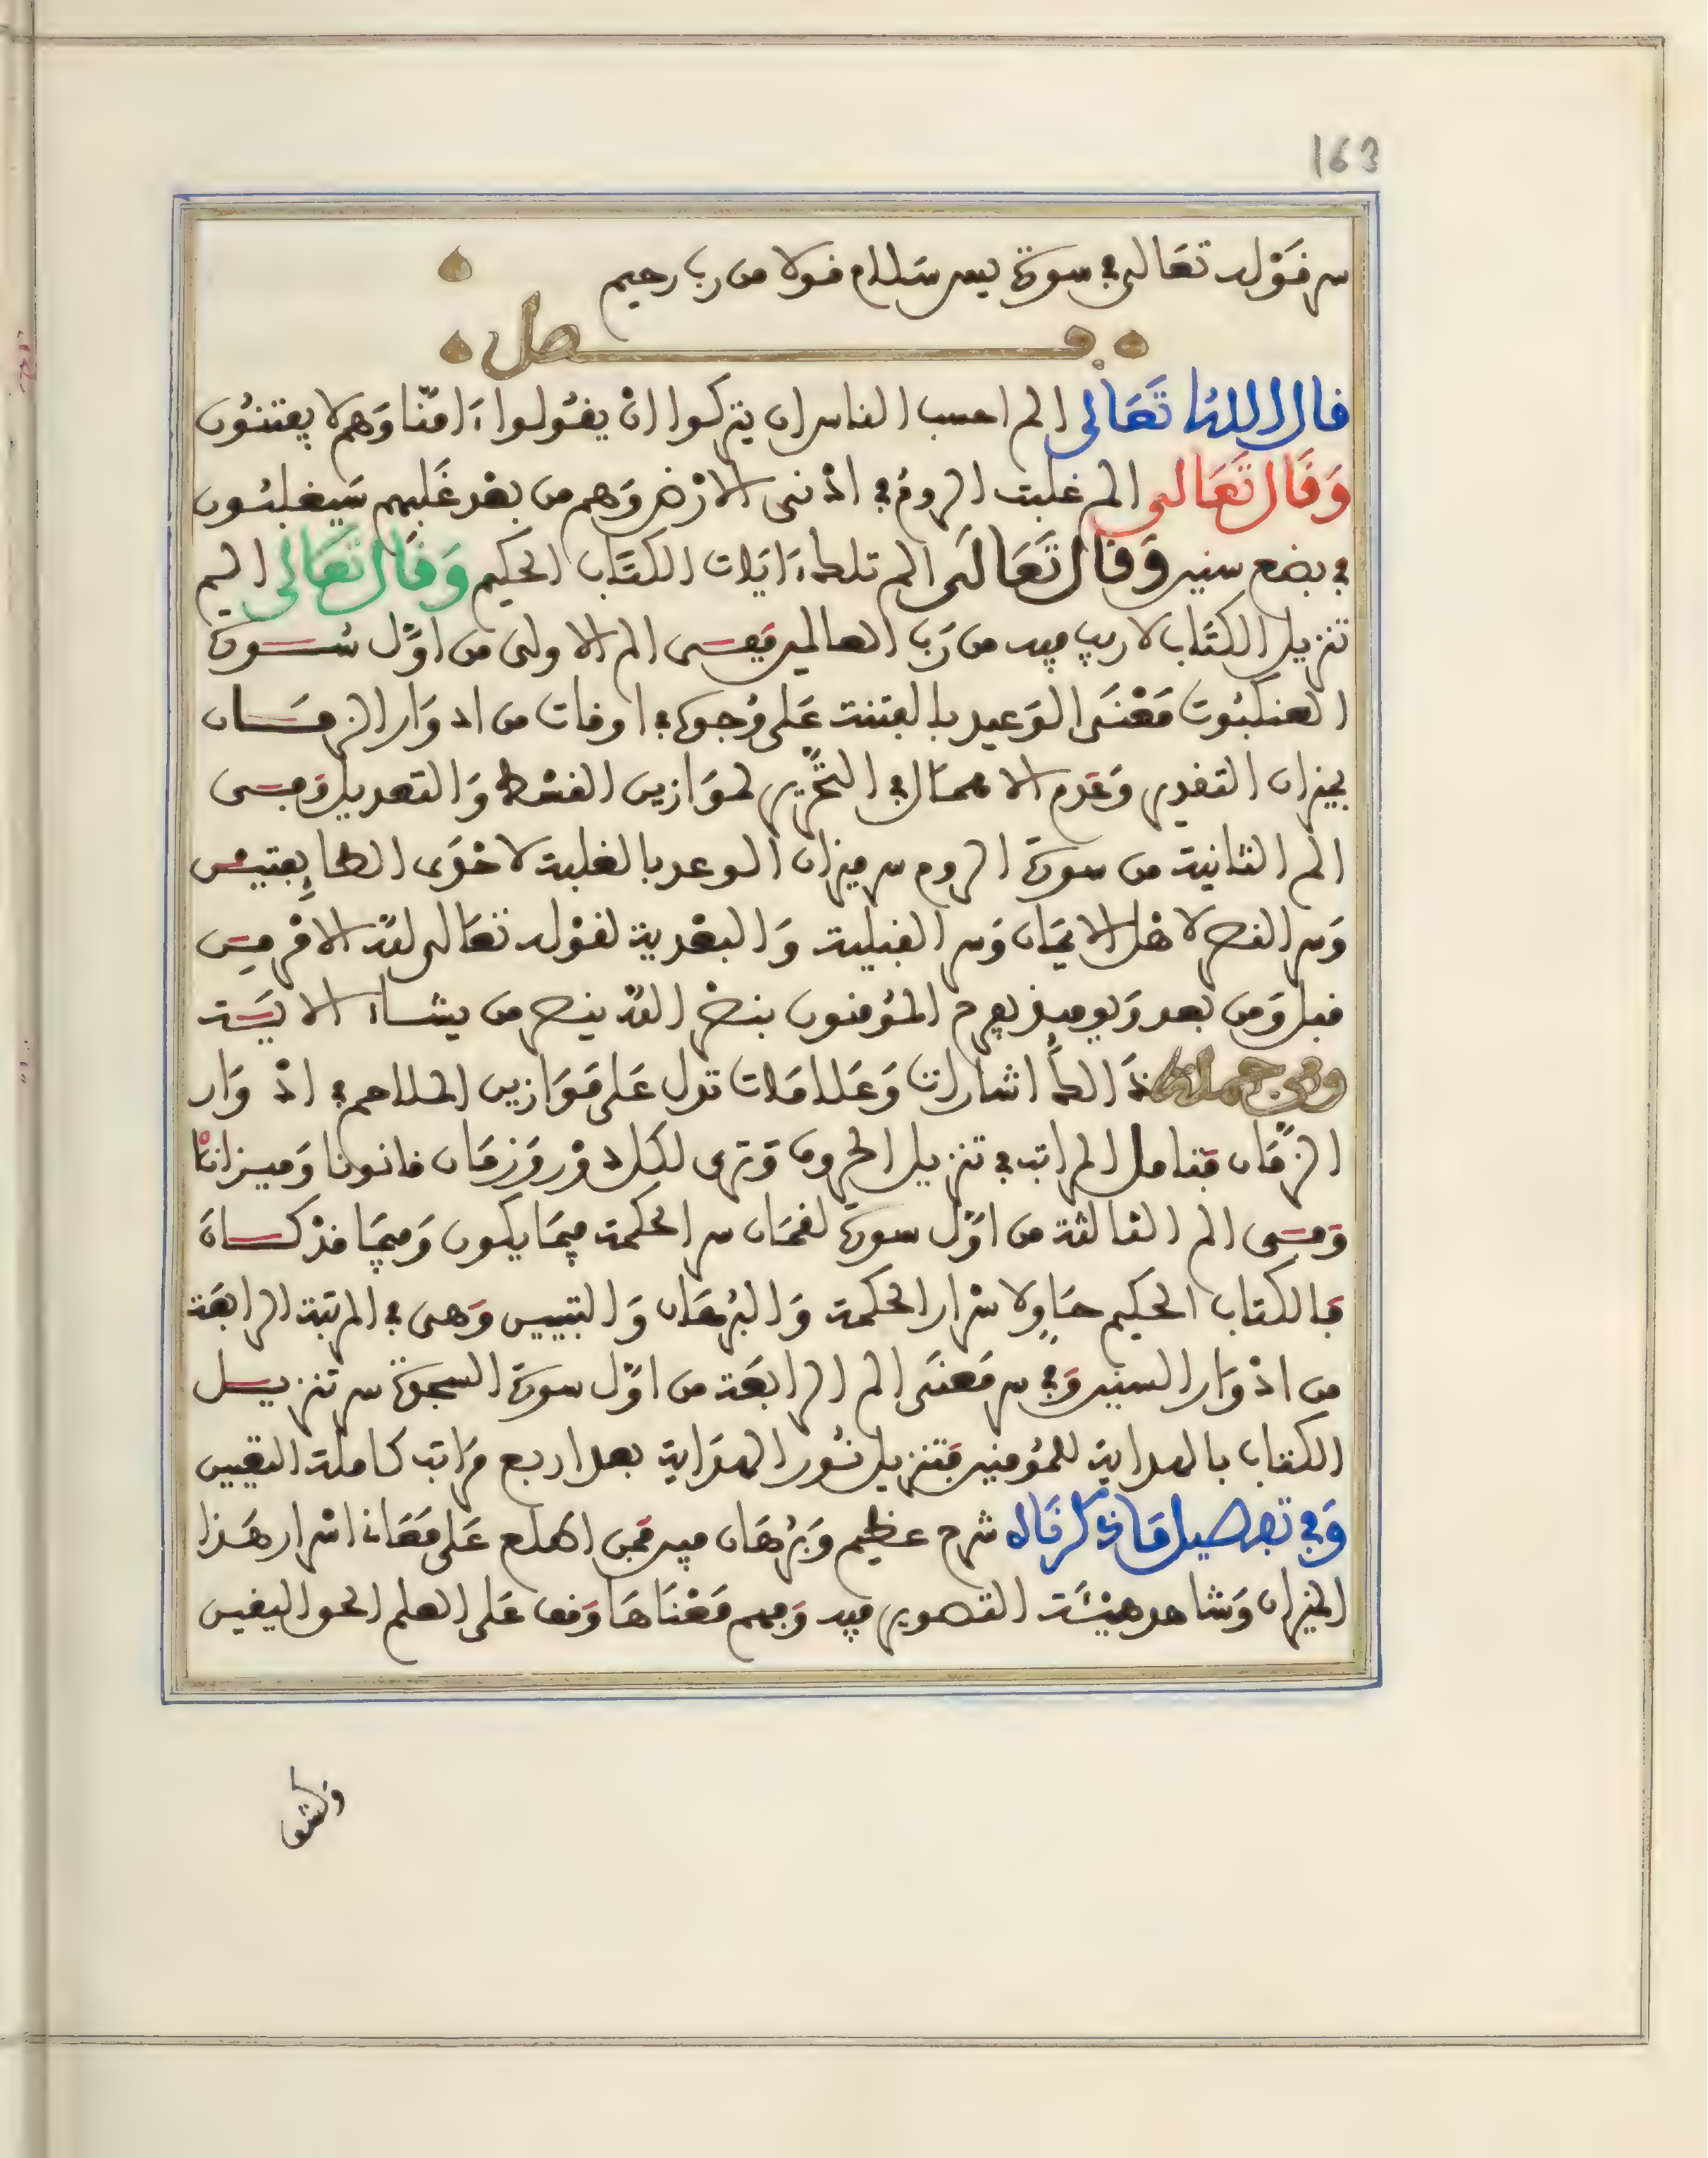 163
سر قوله تعالى في سورة يس سلام قولا من رب رحيم
فصل
قال الله تعالى الم احسب الناس ان يتركوا ان يقولوا ءامنا وهم لا يفتنون
وقال تعالى الم غلبت الروم في ادنى الارض وهم من بعد غلبهم سيغلبون
في بضع سنين وقال تعالى الم تلك ءايات الكتاب الحكيم وقال تعالى الم
تنزيل الكتاب لا ريب فيه من رب العالمين ففى الم الاولى من اول سورة
العنكبوت معنى الوعيد بالفتنة على وجوه في اوقات من ادوار الزمان
بميزان التقدير وعدم الاهمال في التحرير لموازين القسط والتعديل وفى
الم الثانية من سورة الروم سر ميزان الوعد بالغلبة لاحدى الطايفتين
وسر النصر لاهل الايمان وسر القبلية والبعدية لقوله تعالى لله الامر من
قبل ومن بعد ويوميذ يفرح المؤمنون بنصر الله ينصر من يشاء الاية
وفي جملة ذالك اشارات وعلامات تدل على موازين الملاحم في ادوار
الزمان فتامل المراتب في تنزيل الحروف وترى لكل دور وزمان قانونا وميزانا
وفى الم الثالثة من اول سورة لقمان سر الحكمة فيما يكون وفيما قد كان
فالكتاب الحكيم حاو لاسرار الحكمة والبرهان والتبيين وهى في المرتبة الرابعة
من ادوار السنين وفي سر معنى الم الرابعة من اول سورة السجدة سر تنزيل
الكتاب بالهداية للمؤمنين فتنزيل نور الهداية بعد اربع مراتب كاملة التعيين
وفي تفصيل ما ذكرناه شرح عظيم وبرهان فيه فمن اطلع على معانى اسرار هذا
الميزان وشاهد هيئة التصوير فيه وفهم معناها وقف على العلم الحق اليقين